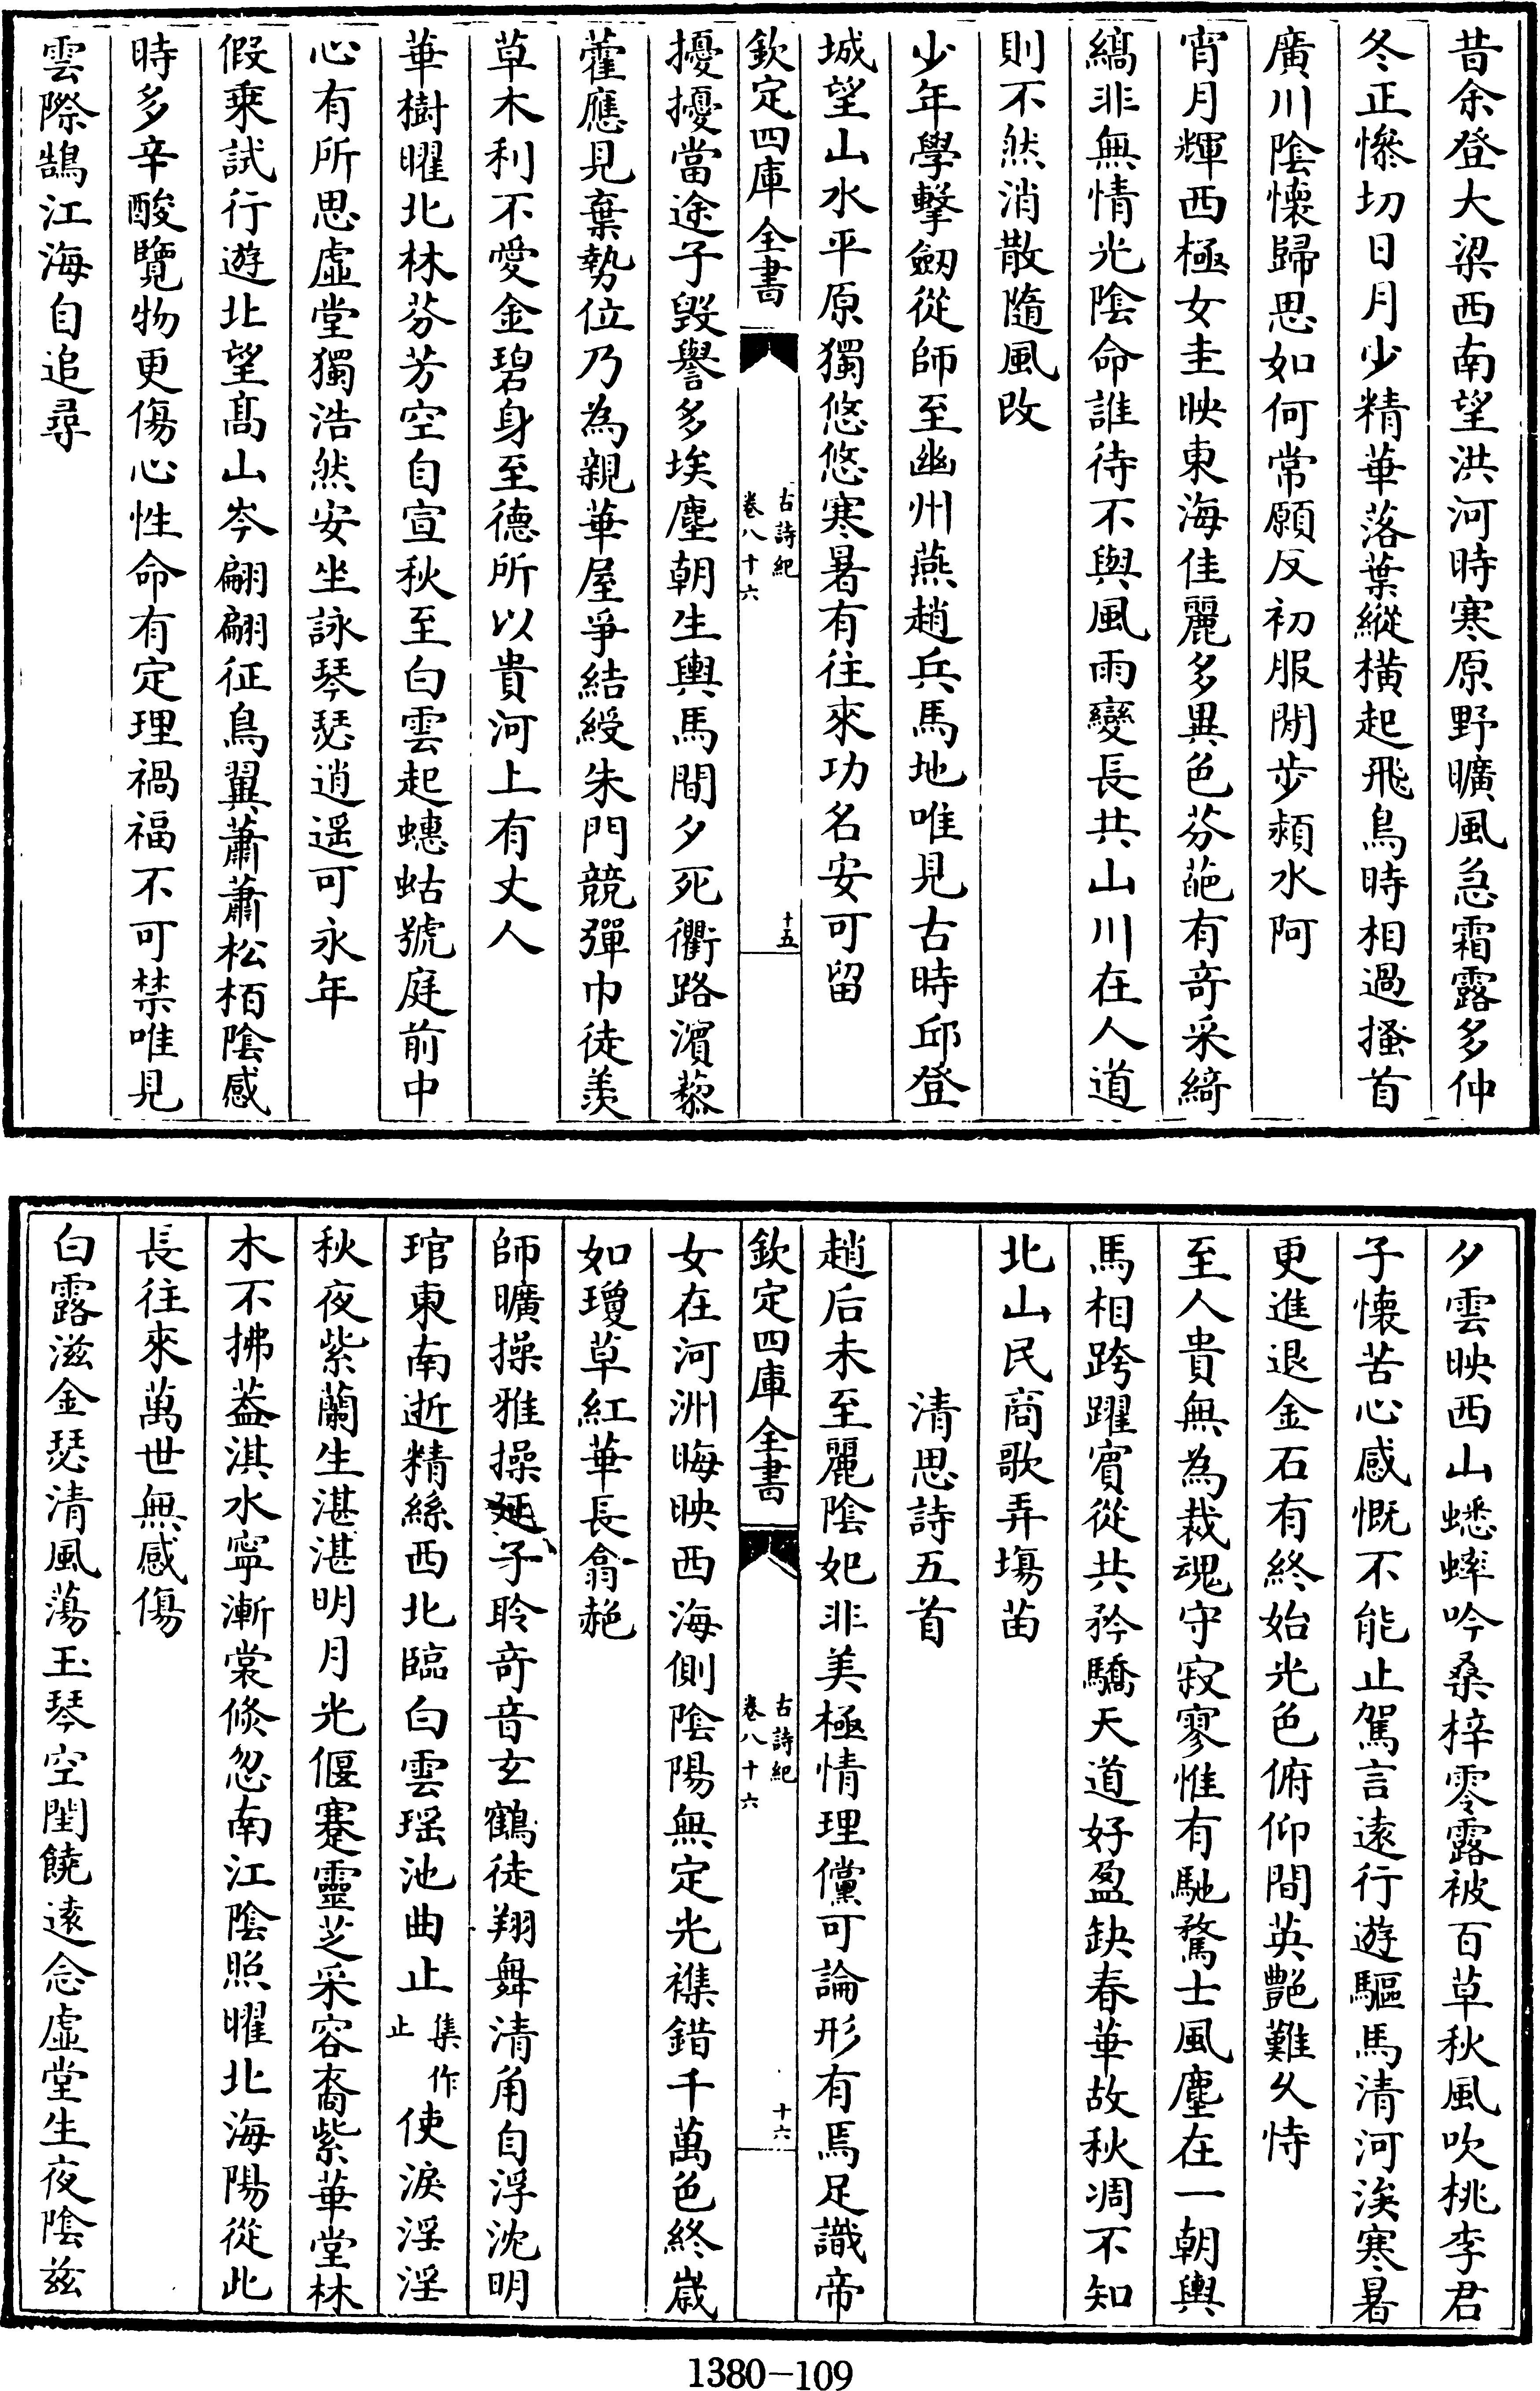 昔余登大梁西南望洪河時寒原野曠風急霜露多仲
冬正慘切日月少精華落葉縱橫起飛鳥時相過搔首
廣川陰懷歸思如何常願反初服閒步潁水阿
宵月輝西極女圭映東海佳麗多異色芬葩有奇采綺
縞非無情光陰命誰待不與風雨變長共山川在人道
則不然消散隨風改
少年學擊劒從師至幽州燕趙兵馬地唯見古時邱登
城望山水平原獨悠悠寒暑有往來功名安可留
欽定四庫全書
古詩紀
卷八十六
十五
擾擾當途子毀譽多埃塵朝生輿馬間夕死衢路濵藜
藿應見棄勢位乃為親華屋爭結綬朱門競彈巾徒羨
草木利不愛金碧身至德所以貴河上有丈人
華樹曜北林芬芳空自宣秋至白雲起蟪蛄號庭前中
心有所思虛堂獨浩然安坐詠琴瑟逍遥可永年
假乘試行遊北望髙山岑翩翩征鳥翼蕭蕭松栢陰感
時多辛酸覽物更傷心性命有定理禍福不可禁唯見
雲際鵠江海自追尋
夕雲映西山蟋蟀吟桑梓零露被百草秋風吹桃李君
子懷苦心感慨不能止駕言遠行遊驅馬清河涘寒暑
更進退金石有終始光色俯仰間英艷難乆恃
至人貴無為裁魂守寂寥惟有馳騖士風塵在一朝輿
馬相跨躍賓從共矜驕天道好盈缺春華故秋凋不知
北山民商歌弄塲苗
清思詩五首
趙后未至麗陰妃非美極情理儻可論形有焉足識帝
欽定四庫全書
古詩紀
卷八十六
十六
女在河洲晦映西海側陰陽無定光襍錯千萬色終嵗
如瓊草紅華長翕赩
師曠操雅操延子聆奇音玄鶴徒翔舞清角自浮沈明
琯東南逝精絲西北臨白雲瑶池曲止集作止使淚淫淫
秋夜紫蘭生湛湛明月光偃蹇靈芝采容裔紫華堂林
木不拂葢淇水寧漸裳倐忽南江陰照曜北海陽從此
長往來萬世無感傷
白露滋金瑟清風蕩玉琴空閨饒遠念虛堂生夜陰兹
1380-109